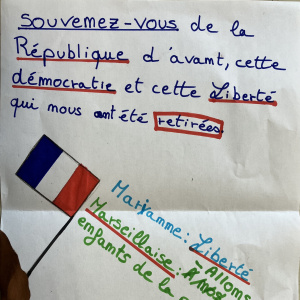 souvemez-vous de la
République d'avant, cette
démocratie et cette Liberté
qui nous ont été retirées.
Mariamme: Liberté
Marseillaise: Allons
enfamts de la